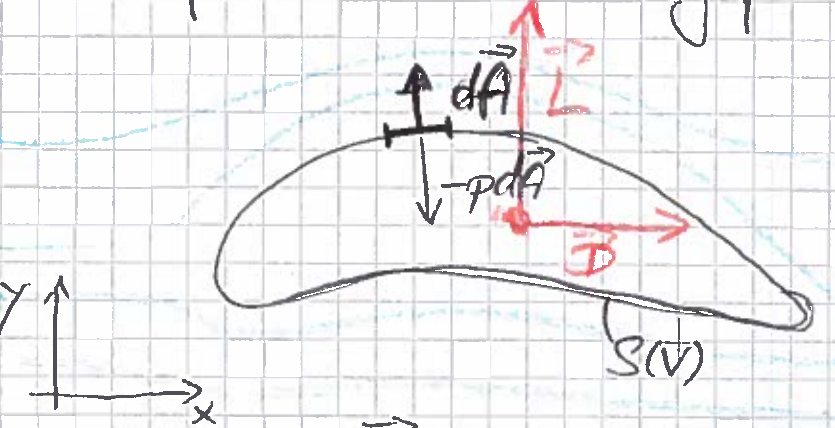 dA⃗
L⃗
-pdA⃗
D⃗
y
S(V)
x